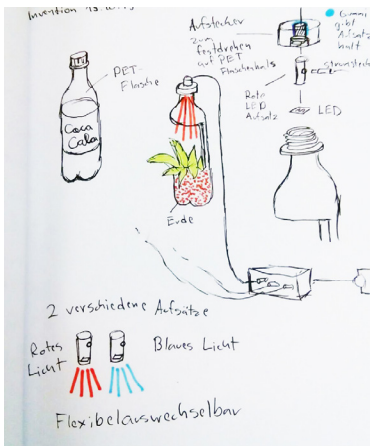 Invention
Aufstecker
zum
festdrehen
auf PET
Flaschenhals
Gummi
gibt
Aufsatz
halt
PET-
Flasche
Coca
Cala
Rote
LED
Aufsatz
LED
Erde
2 verschiedene Aufsätze
Rotes
Licht
Blaues Licht
Flexibelauswechselbar